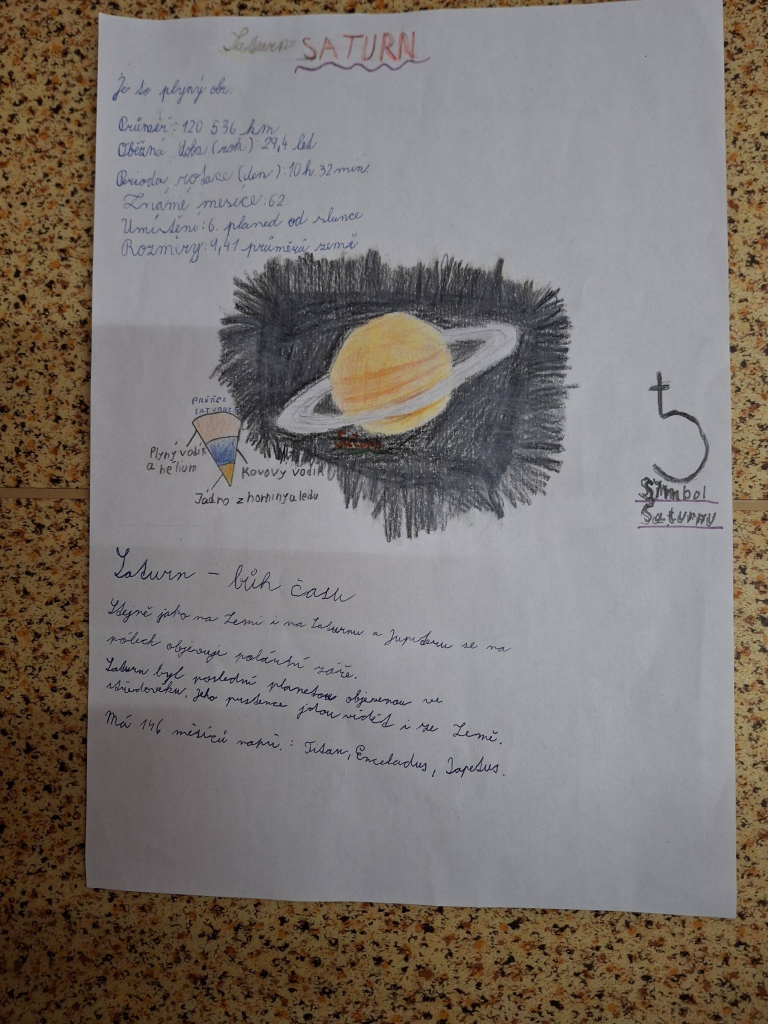 Saturn SATURN
Je to plyný obr.
Průměr: 120 536 km
Oběžná doba (rok): 29,4 let
Perioda rotace (den): 10 h 32 min.
Známé měsíce: 62
Umístění: 6. planed od slunce
Rozměry: 9,41 průměrů země
PRŮŘEZ
SATURNEM
Plyný vodík
a hélium
Kovový vodík
Jádro z horniny a ledu
Saturn
Symbol
Saturnu
Saturn – bůh času
Stejně jako na Zemi i na Saturnu a Jupiteru se na
pólech objevují polární záře.
Saturn byl poslední planetou objevenou ve
středověku. Jeho prstence jdou vidět i ze Země.
Má 146 měsíců např.: Titan, Enceladus, Iapetus.